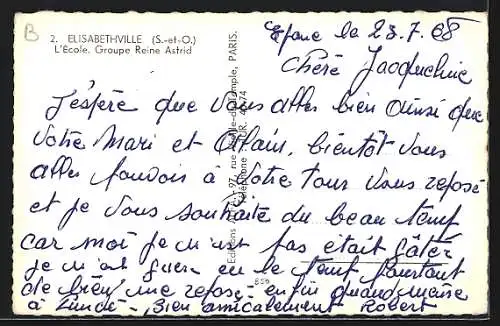 B
2. ELISABETHVILLE (S.-et-O.)
L'École. Groupe Reine Astrid
Epone le 23.7.68
Chère Jacqueline
J'espère que vous allez bien ainsi que
votre Mari et Alain. bientôt vous
allez pouvoir à votre tour vous reposé
et je vous souhaite du beau temp
car moi je n'ai pas était gâter
je n'ai guere eu le temp pourtant
de bien me reposé enfin quand même
à Lundi - Bien amicalement Robert
Editions 97, rue PARIS.
Téléphone